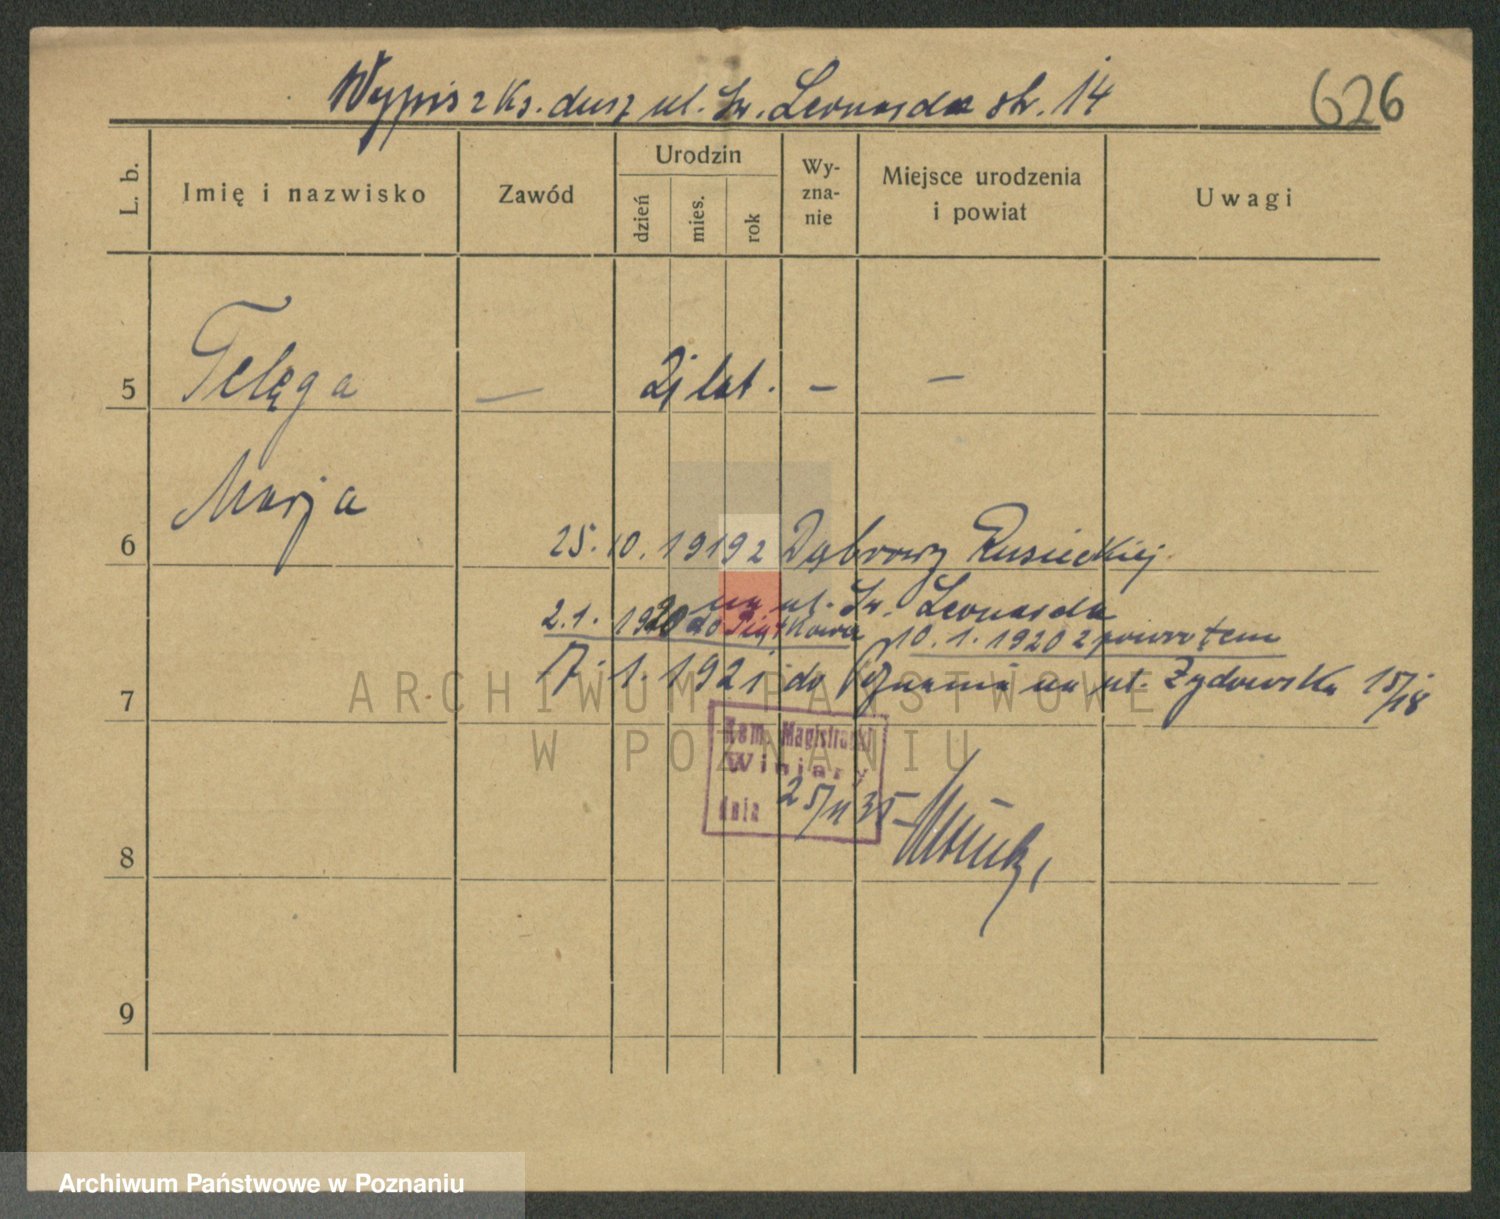 Wypis z Ks. dusz ul. Św. Leonarda str. 14
626
L. b.
Imię i nazwisko
Zawód
Urodzin
dzień
mies.
rok
Wy-
zna-
nie
Miejsce urodzenia
i powiat
Uwagi
5 Telęga — 21 lat. — —
Marja
6 25. 10. 1919 z Dąbrowy Rusieckiej
na ul. Św. Leonarda
2.1. 1920 do Piątkowa 10. 1. 1920 z powrotem
7 17. 1. 1921 do Poznania na ul. Żydowska 15/18
ARCHIWUM PAŃSTWOWE
W POZNANIU
Kom. Magistracki
Winiary
dnia 25/II 35
8
9
Archiwum Państwowe w Poznaniu